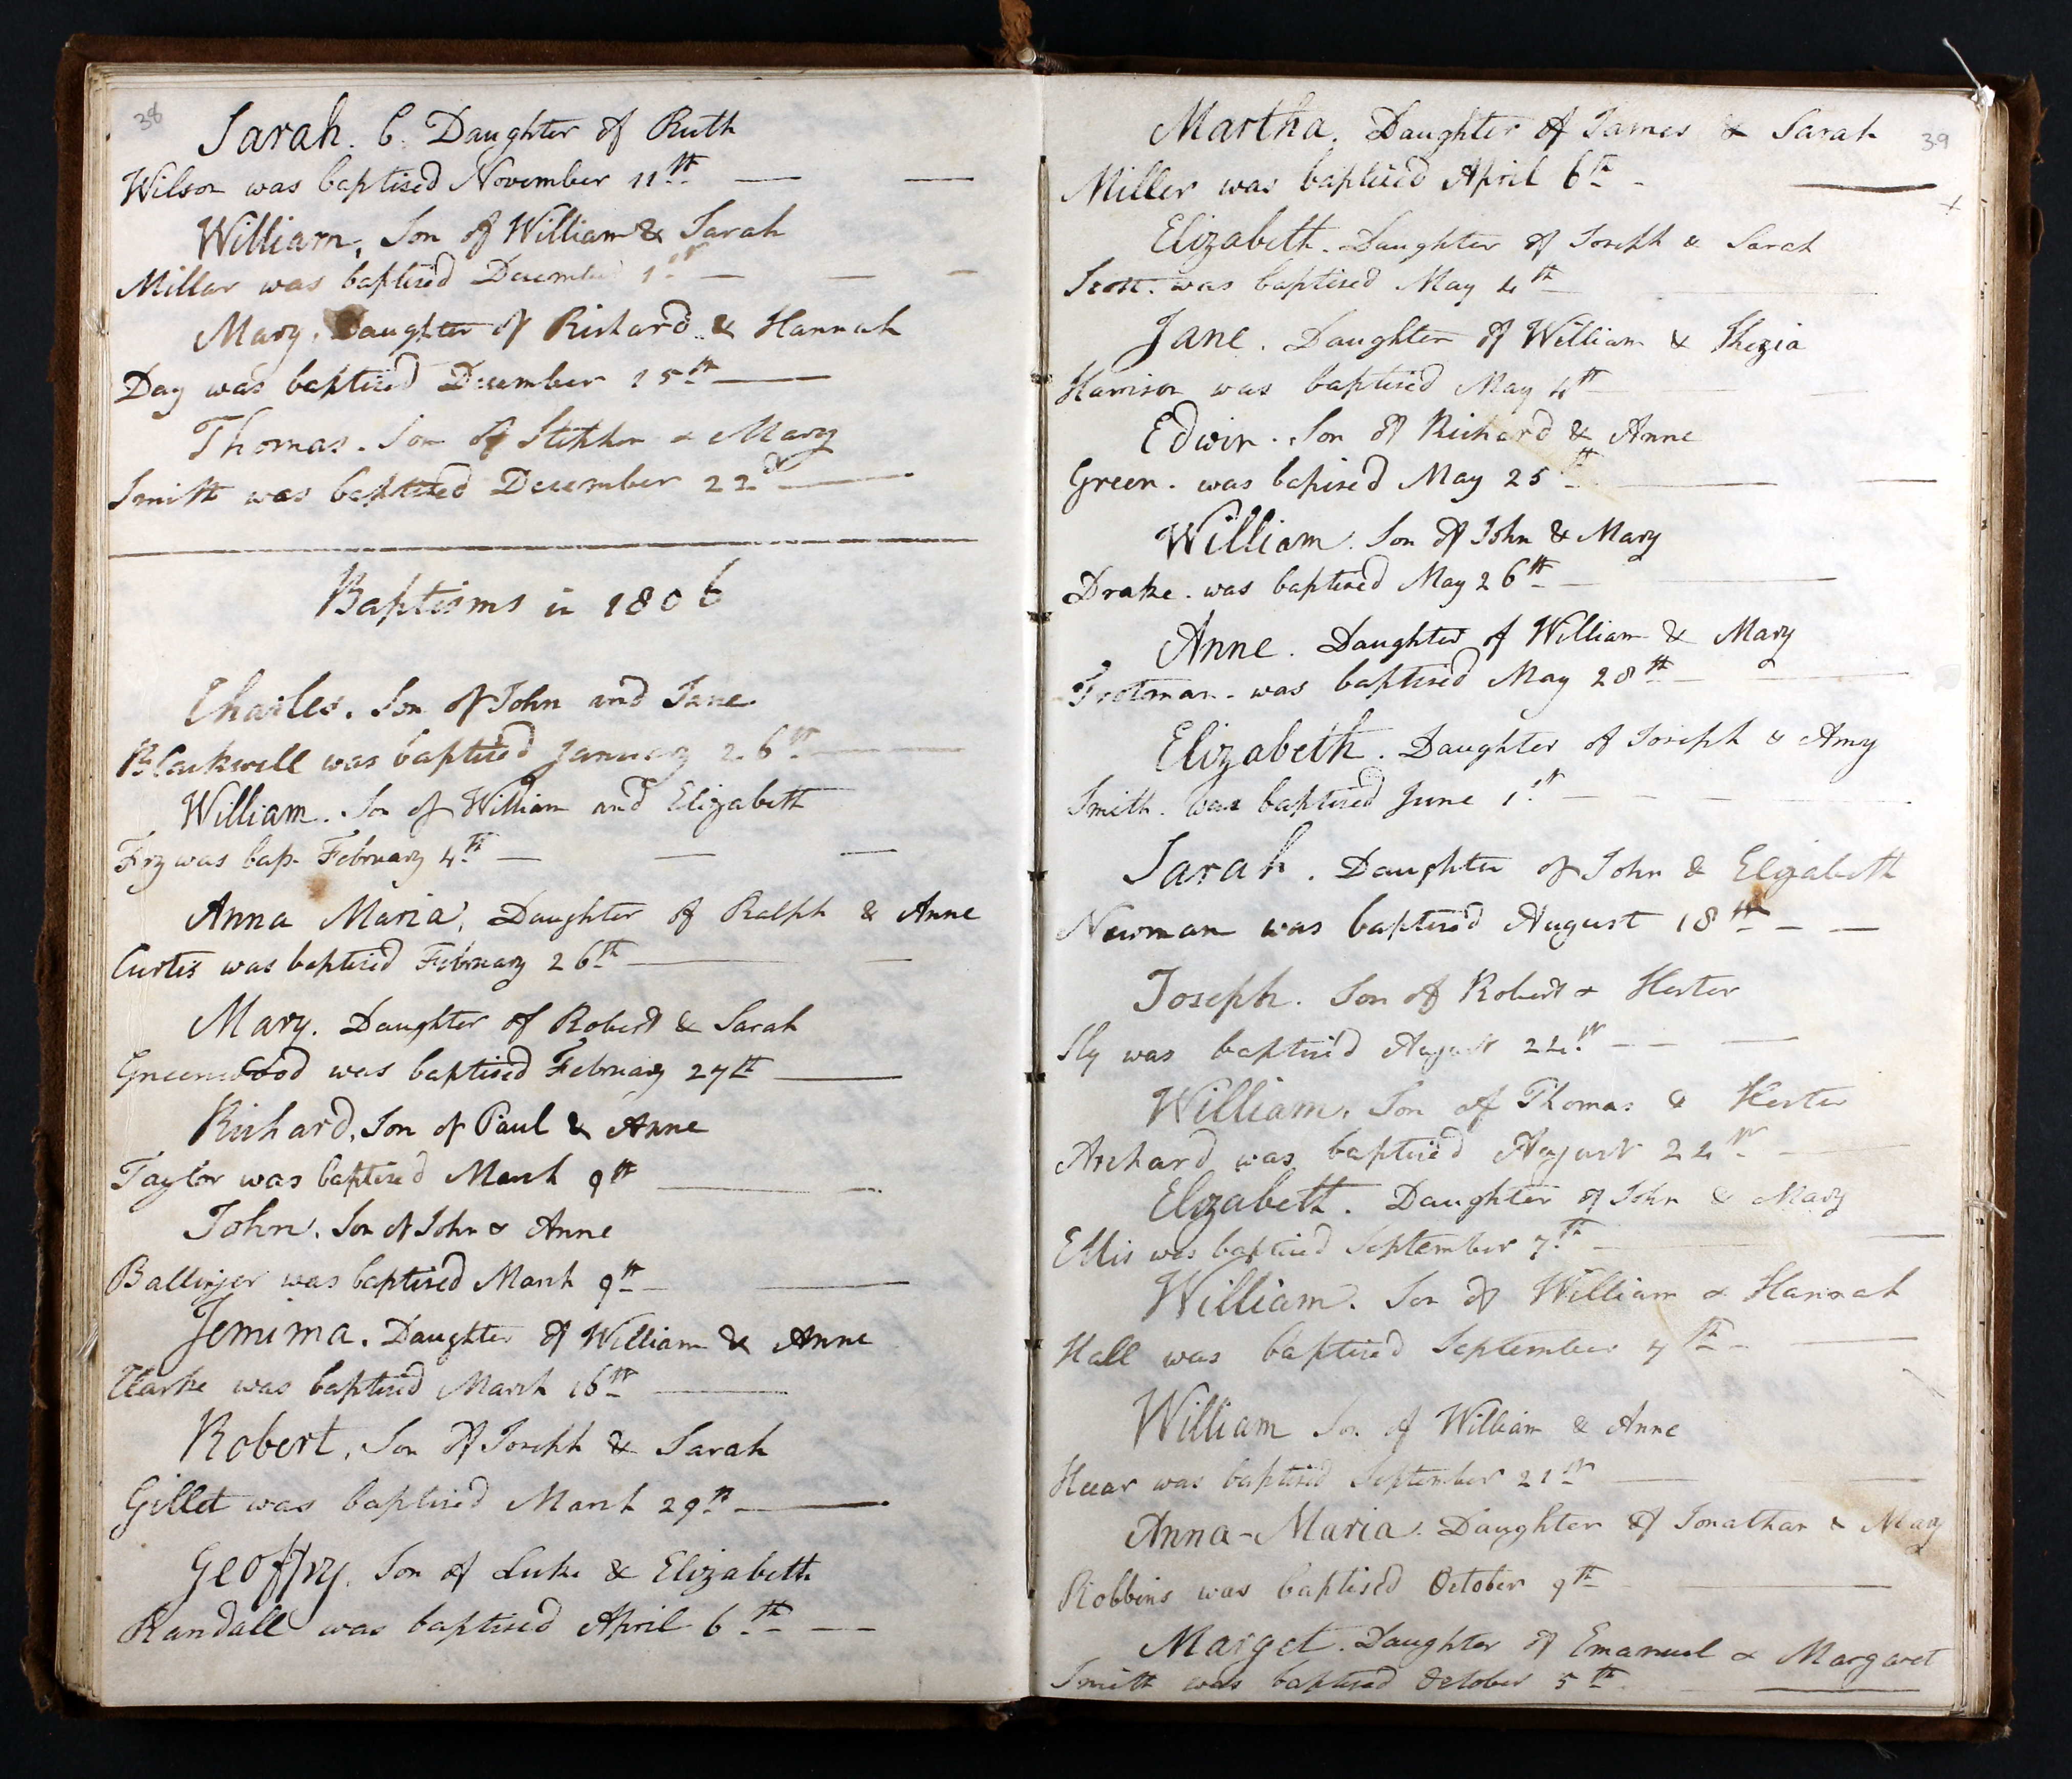 38
Sarah. C. Daughter of Ruth
Wilson was baptised November 11th
William, Son of William & Sarah
Millar was baptised December 1st
Mary, Daughter of Richard & Hannah
Day was baptised December 15th
Thomas. Son of Stephen & Mary
Smith was baptised December 22d
Baptisms in 1806
Charles. Son of John and Jane
Blackwell was baptised January 26th
William. Son of William and Elizabeth
Fry was bap. February 4th
Anna Maria, Daughter of Ralph & Anne
Curtis was baptised February 26th
Mary. Daughter of Robert & Sarah
Greenwood was baptised February 27th
Richard, Son of Paul & Anne
Taylor was baptised March 9th
John. Son of John & Anne
Ballinger was baptised March 9th
Jemima. Daughter of William & Anne
Clarke was baptised March 16th
Robert, Son of Joseph & Sarah
Gillet was baptised March 29th
Geoffry. Son of Luke & Elizabeth
Randall was baptised April 6th
39
Martha, Daughter of James & Sarah
Miller was baptised April 6th
Elizabeth. Daughter of Joseph & Sarah
Scott. was baptised May 4th
Jane. Daughter of William &
Harrison was baptised May 4th
Edwin. Son of Richard & Anne
Green. was bapised May 25th
William. Son of John & Mary
Drake. was baptised May 26th
Anne. Daughter of William & Mary
Trotman. was baptised May 28th
Elizabeth. Daughter of Joseph & Amy
Smith. was baptised June 1st
Sarah. Daughter of John & Elizabeth
Newman was baptised August 18th
Joseph. Son of Robert & Hester
Sly was baptised August
William. Son of Thomas & Hester
Archard was baptised August
Elizabeth. Daughter of John & Mary
Ellis was baptised September 7th
William. Son of William & Hannah
Hall was baptised September 7th
William Son of William & Anne
was baptised September 21st
Anna-Maria. Daughter of Jonathan & Mary
Robbins was baptised October 9th
Marget. Daughter of Emanuel & Margaret
Smith was baptised October 5th